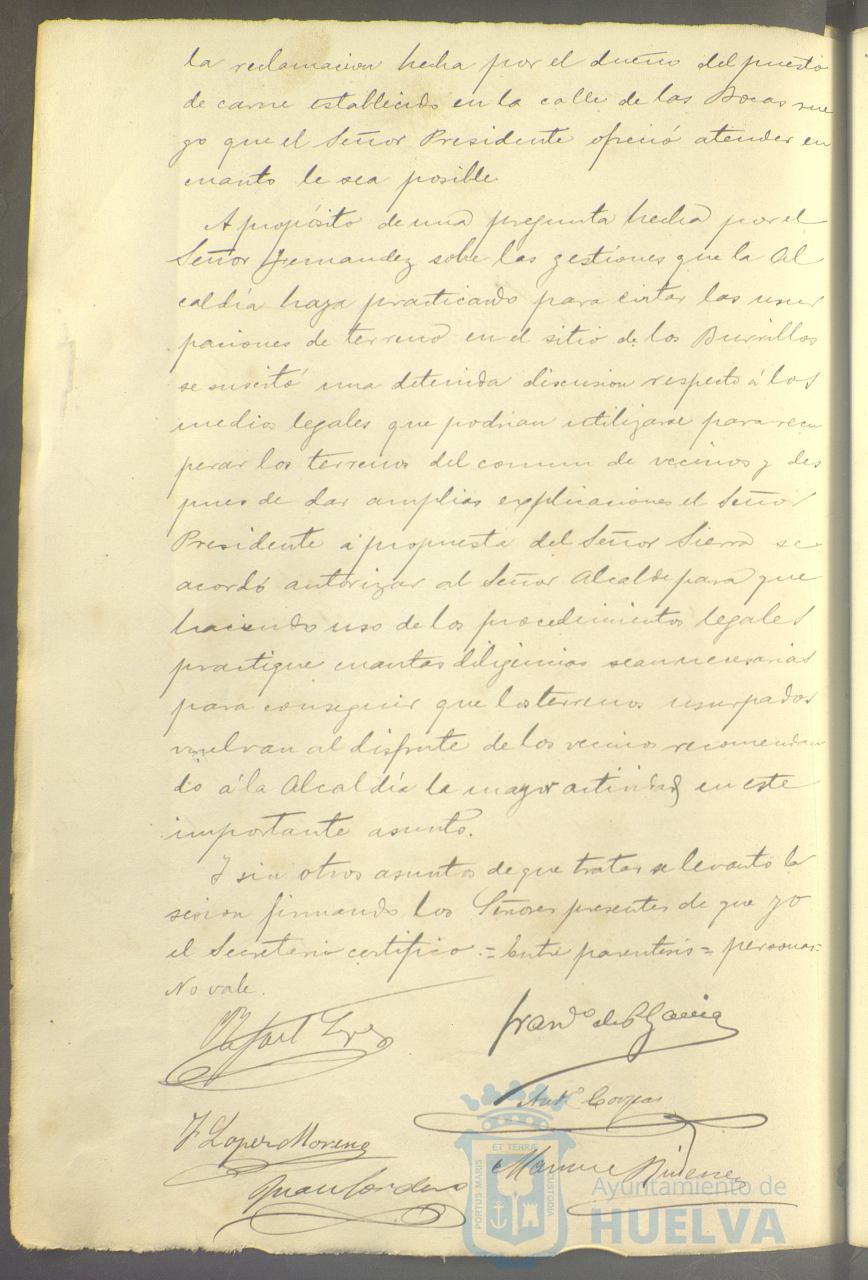 la reclamacion hecha por el dueño del puesto
de carne establecido en la calle de las Bocas rue
go que el Señor Presidente ofreció atender en
cuanto le sea posible
A propósito de una pregunta hecha por el
Señor Fernandez sobre las gestiones que la Al
caldía haya practicado para evitar las usur
paciones de terreno en el sitio de los Burrillos
se suscitó una detenida discusion respecto á los
medios legales que podrian utilizarse para recu
perar los terrenos del comun de vecinos y des
pues de dar amplias explicaciones el Señor
Presidente á propuesta del Señor Sierra se
acordó autorizar al Señor Alcalde para que
haciendo uso de los procedimientos legales
practique cuantas diligencias sean necesarias
para conseguir que los terrenos usurpados
vuelvan al disfrute de los vecinos recomendan
do á la Alcaldía la mayor actividad en este
importante asunto.
Y sin otros asuntos de que tratar se levantó la
sesion firmando los Señores presentes de que yo
el Secretario certifico.= Entre parentesis = personas=
No vale.
Franco de P. Garcia
J Lopez Moreno
Juan Cordero
PORTUS MARIS ET TERRÆ CUSTODIA
Ayuntamiento de
HUELVA